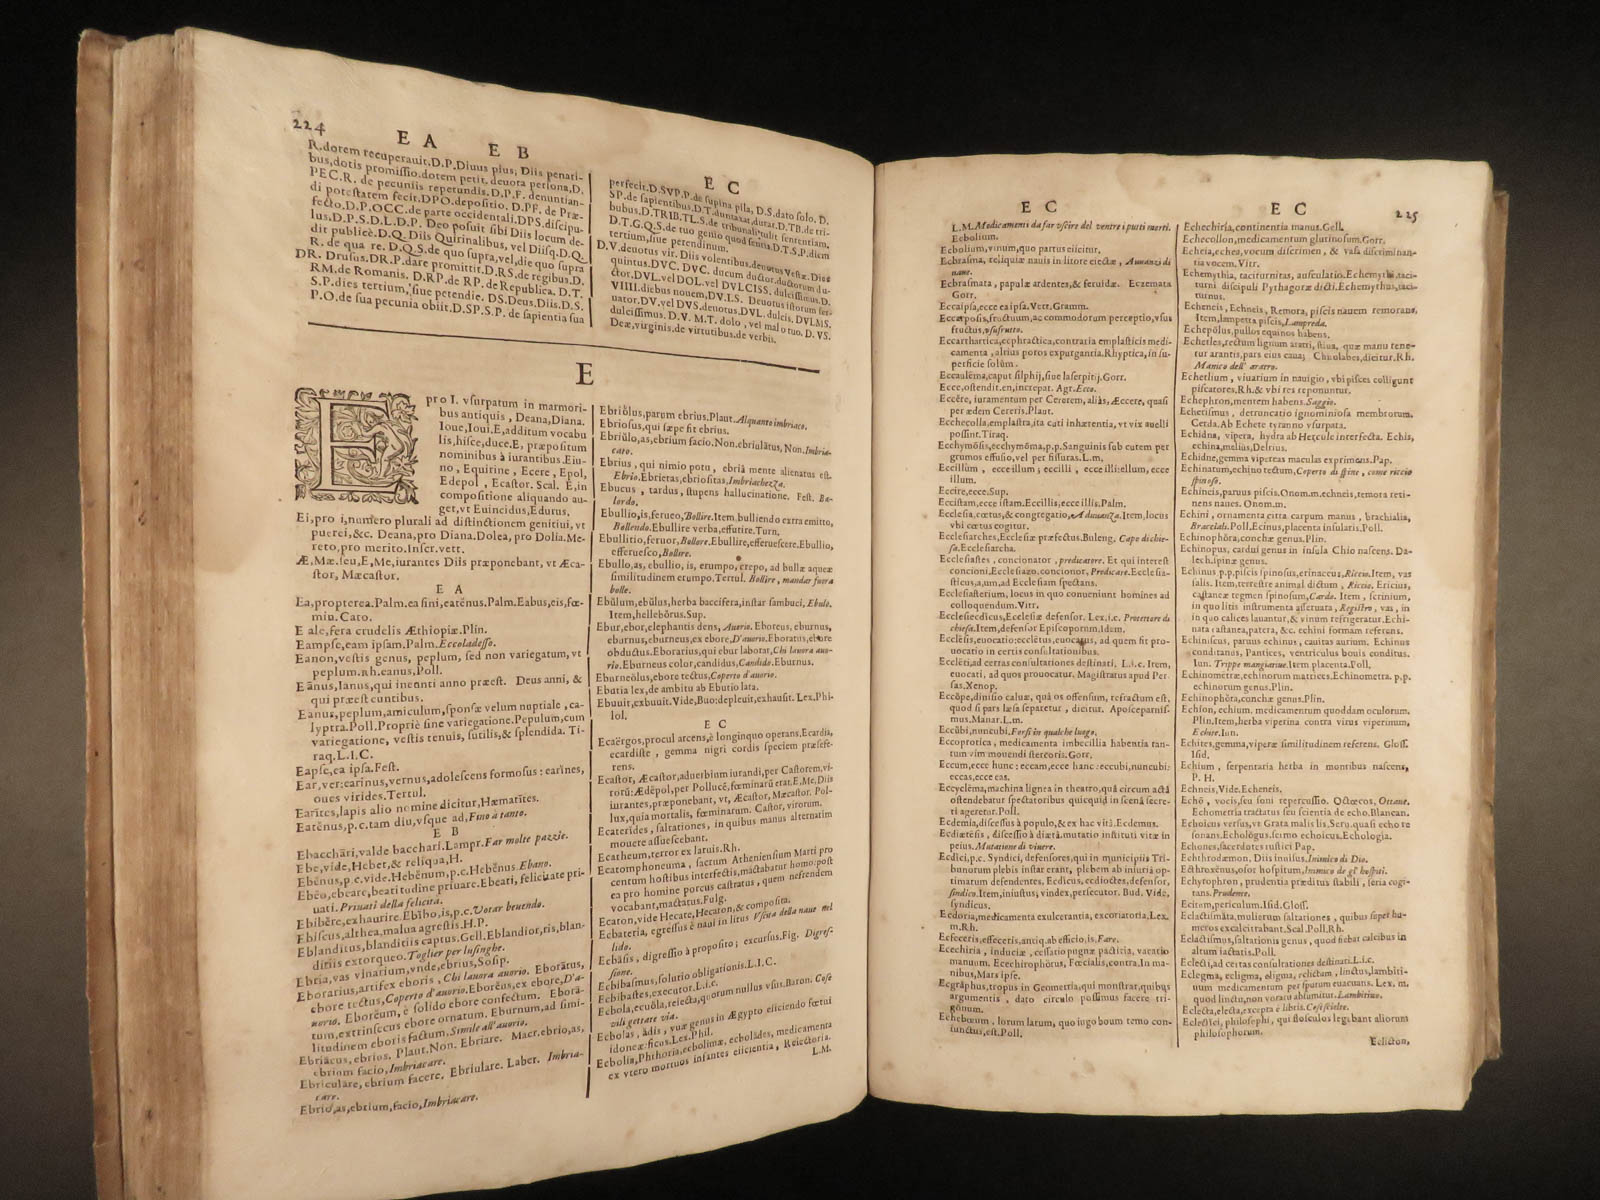 224
EA EB
R.dorem recuperauit.D.P.Diuus pius; Diis penati-
bus,dotis promissio.dotem petit. deuota persona,D.
PEC.R. de pecuniis repetundis.D.P.F. denuntian-
di potestatem fecit.DPO.depositio. D.PF. de Præ-
fecto.D.P.OCC.de parte occidentali.DPS.discipu-
lus.D.P.S.D.L.D.P. Deo posuit sibi Diis locum de-
dit publicè.D.Q. Diis Quirinalibus, vel Diisq.D.Q.
R. de qua re. D.Q.S.de quo supra,vel,die quo supra
DR. Drusus.DR.P.dare promittit.D.RS.de regibus.D.
RM.de Romanis. D.RP.de RP.de Republica. D.T.
S.P.dies tertium,siue petendie. DS.Deus.Diis.D.S.
P.O.de sua pecunia obiit.D.SP.S.P. de sapientia sua
EC
perfecit.D.SVP.P.de supina pila, D.S.dato solo, D.
SP.de sapientibus.D.T.duntaxat,durat.D.TB.de tri-
bubus.D.TRIB.TL.S.de tribunali tulit sententiam,
D.T.G.Q.S.de tuo genio quod sentis.D.T.S.P.diem
tertium,siue perendinum.
D.V.deuotus vir. Diis volentibus.deuotus Vestæ.Dies
quintus. DVC. DVC. ducum ductor,ductorum du-
ctor.DVL.vel DOL.vel DVLCISS. dulcissimus.D.
VIIII.diebus nouem,D.V.I.S. Deuotus istorum ser-
uator.DV.vel DVS.deuotus.DVL. dulcis.DVLMS.
dulcissimus. D.V. M.T. dolo , vel malo tuo. D. VS.
Deæ,virginis.de virtutibus.de verbis.
E
E pro I. vsurpatum in marmori-
bus antiquis , Deana,Diana.
Ioue,Ioui.E,additum vocabu
lis,hisce,duce.E, præpositum
nominibus à iurantibus.Eiu-
no, Equirine, Ecere, Epol,
Edepol , Ecastor. Scal. E,in
compositione aliquando au-
get,vt Euincidus,Edurus.
Ei,pro i,numero plurali ad distinctionem genitiui, vt
puerei,&c. Deana,pro Diana.Dolea, pro Dolia.Me-
reto,pro merito.Inscr.vett.
Æ,Mæ.seu,E,Me,iurantes Diis præponebant, vt Æca-
stor, Mæcastor.
EA
Ea,propterea.Palm.ea fini,eatēnus.Palm.Eabus,eis,fœ-
min. Cato.
E ale,fera crudelis Æthiopiæ.Plin.
Eampse,eam ipsam.Palm.Eccoladesso.
Eanon,vestis genus, peplum, sed non variegatum, vt
peplum.rh.eanus,Poll.
Eānus,Ianus,qui ineunti anno præest. Deus anni, &
qui præest euntibus.
Eanus,peplum,amiculum,sponsæ velum nuptiale , ca-
lyptra.Poll.Propriè sine variegatione.Pepulum,cum
variegatione, vestis tenuis, sutilis,& splendida. Ti-
raq.L.I.C.
Eapse,ea ipsa.Fest.
Ear,ver:earinus,vernus,adolescens formosus : earīnes,
oues virides.Tertul.
Earītes,lapis alio nomine dicitur,Hæmatītes.
Eatēnus,p.c.tam diu,vsque ad,Fino à tanto.
EB
Ebacchāri,valde bacchari.Lampr.Far molte pazzie.
Ebe,vide,Heber,& reliqua,H.
Ebēnus,p.c.vide.Hebēnum,p.c.Hebēnus.Ebano.
Ebĕo,ebeare,beatitudine priuare.Ebeati, felicitate pri-
uati. Priuati della felicità.
Ebibĕre,exhaurire.Ebībo,is,p.c.Votar beuendo.
Ebiscus,althea,malua agrestis.H.P.
Eblanditus,blanditiis captus.Gell.Eblandior,ris,blan-
ditiis extorqueo.Toglier per lusinghe.
Ebria,vas vinarium,vnde,ebrius,Sosip.
Eborarius,artifex eboris , Chi lauora auorio. Eborātus,
ebore tectus,Coperto d'auorio. Eborĕus,ex ebore,D'a-
uorio. Eborĕum, è solido ebore confectum. Eborā-
tum,extrinsecus ebore ornatum. Eburnum,ad simi-
litudinem eboris factum.Simile all'auorio.
Ebriācus,ebrios, Plaut.Non. Ebriare. Macr.ebrio,as,
ebrium facio,Imbriacare.
Ebriculare, ebrium facere. Ebriulare. Laber. Imbria-
care.
Ebrio,as,ebrium,facio,Imbriacare.
Ebriŏlus,parum ebrius.Plaut.Alquanto imbriaco.
Ebriosus,qui sæpe fit ebrius.
Ebriŭlo,as,ebrium facio.Non.ebriulātus,Non.Imbria-
cato.
Ebrius , qui nimio potu , ebriâ mente alienatus est.
Ebrio.Ebrietas,ebriositas,Imbriachezza.
Ebucus , tardus , stupens hallucinatione. Fest. Ba-
lordo.
Ebullio,is,ferueo,Bollire.Item,bulliendo extra emitto,
Bollendo.Ebullire verba,effutire.Turn,
Ebullitio,feruor,Bollore.Ebullire,efferuescere.Ebullio,
efferuesco,Bollire.
Ebullo,as, ebullio, is, erumpo, crepo, ad bullæ aqueæ
similitudinem erumpo.Tertul. Bollire , mandar fuora
bolle.
Ebŭlum,ebŭlus,herba baccifera,instar sambuci, Ebulo.
Item,hellebŏrus.Sup.
Ebur,ebor,elephantis dens, Auorio. Eboreus, eburnus,
eburnus,eburneus,ex ebore,D'auorio.Eboratus,ebore
obductus.Eborarius,qui ebur laborat,Chi lauora auo-
rio.Eburneus color,candidus,Candido.Eburnus.
Eburneŏlus,ebore tectus,Coperto d'auorio.
Ebutia lex,de ambitu ab Ebutio lata.
Ebuuit,exbuuit.Vide,Buo:depleuit,exhausit. Lex.Phi-
lol.
EC
Ecaërgos,procul arcens,è longinquo operans,Ecardia,
ecardiste , gemma nigri cordis speciem præsefe-
rens.
Ecastor, Æcastor,aduerbium iurandi,per Castorem,vi-
rorū:Ædĕpol,per Pollucē,fœminarū erat.E.Me,Diis
iurantes,præponebant, vt, Æcastor, Mæcastor. Pol-
lux,quia mortalis, fœminarum. Castor, virorum.
Ecaterīdes, saltationes , in quibus manus alternatim
mouere assuescebant.
Ecatheum,terror ex laruis.Rh.
Ecatomphoneuma, factum Atheniensium Marti pro
centum hostibus interfectis,mactabatur homo:post
pro homine porcus castratus , quem nefrendem
vocabant,mactatus.Fulg.
Ecaton,vide Hecate,Hecaton,& composita.
Ecbateria, egressus è naui in litus Vscita della naue nel
lido.
Ecbāsis, digressio à proposito; excursus.Fig. Digres-
sione.
Ecbibasmus,solutio obligationis.L.I.C.
Ecbibastes,executor.L.i.c.
Ecbola,ecuŏla,reiecta,quorum nullus vsus.Baron. Cose
vili gettate via.
Ecbolas , ādis , vuæ genus in Ægypto eiiciendo fœtui
idoneæ:ficos.Lex.Phil.
Ecbolia,Phthoria,ecbolimæ, ecbolādes, medicamenta
ex vtero mortuos infantes eiicientia , Reiectoria.
L.M.
EC
EC
225
L.M.Medicamenti da far vscire del ventre i putti morti.
Ecbolium.
Ecbolium,vinum,quo partus eiicitur.
Ecbrasma, reliquiæ nauis in litore eiectæ , Auuanzi di
naue.
Ecbrasmata , papulæ ardentes,& feruidæ. Eczemata
Gorr.
Eccaipsa,ecce ea ipsa.Vett.Gramm.
Eccarposis,fructuum,ac commodorum perceptio,vsus
fructus,vsufrutto.
Eccarthartica,ecphractica,contraria emplasticis medi-
camenta , altius poros expurgantia.Rhyptica, in su-
perficie solùm.
Eccaulēma,caput silphij,siue laserpitij.Gorr.
Ecce,ostendit.en,increpat. Agr.Ecco.
Eccĕre, iuramentum per Cererem,aliàs, Æccere, quasi
per ædem Cereris.Plaut.
Ecchecolla,emplastra,ita cuti inhærentia, vt vix auelli
possint.Tiraq.
Ecchymōsis,ecchymōma,p.p.Sanguinis sub cutem per
grumos effusio,vel per fissuras.L.m.
Eccillum , ecce illum ; eccilli , ecce illi:ellum, ecce
illum.
Eccire,ecce.Sup.
Eccistam,ecce istam.Eccillis,ecce illis.Palm.
Ecclesia,cœtus,& congregatio,Adunanza.Item,locus
vbi cœtus cogitur.
Ecclesiarches,Ecclesiæ præfectus.Buleng. Capo di chie-
sa.Ecclesiarcha.
Ecclesiastes , concionator , predicatore. Et qui interest
concioni.Ecclesiazo,concionor, Predicare.Ecclesia-
sticus,a,um,ad Ecclesiam spectans.
Ecclesiasterium, locus in quo conueniunt homines ad
colloquendum.Vitr.
Ecclesiecdicus,Ecclesiæ defensor. Lex.i.c Protettore di
chiesa.Item,defensor Episcoporum.Idem.
Ecclēsis,euocatio:ecclētus,euocatus, ad quem fit pro-
uocatio in certis consultationibus.
Ecclēti,ad certas consultationes destinati. L.i.c. Item,
euocati, ad quos prouocatur. Magistratus apud Per-
sas.Xenop.
Eccŏpe,diuisio caluæ, quâ os offensum, refractum est,
quod si pars læsa separetur , dicitur. Aposceparnis-
mus.Manar.L.m.
Eccŭbi,nuncubi.Forsi in qualche luogo.
Eccoprotica , medicamenta imbecilla habentia tan-
tum vim mouendi stercoris.Gorr.
Eccum,ecce hunc : eccam,ecce hanc:eccubi,nuncubi:
eccas,ecce eas.
Eccyclēma,machina lignea in theatro,quâ circum actâ
ostendebatur spectatoribus quicquid in scenâ secre-
tò ageretur.Poll.
Ecdemia,discessus à populo,& ex hac vitâ.Ecdemus.
Ecdiætēsis , discessio à diætâ.mutatio instituti vitæ in
peius.Mutatione di viuere.
Ecdici,p.c. Syndici, defensores,qui in municipiis Tri-
bunorum plebis instar erant, plebem ab iniuria op-
timatum defendentes. Ecdicus,ecdioctes,defensor,
sindico.Item,iniustus, vindex,persecutor. Bud. Vide,
syndicus.
Ecdoria,medicamenta exulcerantia, excoriatoria.Lex.
m.Rh.
Ecfeceris,effeceris,antiq.ab efficio,is,Fare.
Ecechiria , induciæ , cessatio pugnæ pactitia, vacatio
manuum. Ecechirophŏrus, Fœcialis, contra.In ma-
nibus,Mars ipse.
Ecgrāphus,tropus in Geometria,qui monstrat,quibus
argumentis , dato circulo possimus facere tri-
gōnum.
Echebœum , lorum latum, quo iugo boum temo con-
iunctus,est.Poll.
Echechiria,continentia manus.Gell.
Echecollon,medicamentum glutinosum.Gorr.
Echeia,echea,vocum discrimen, & vasa discriminan-
tia vocem.Vitr.
Echemythia, taciturnitas, auscultatio.Echemythi,taci-
turni discipuli Pythagoræ dicti.Echemythus,taci-
turnus.
Echeneis , Echneis , Remora, piscis nauem remorans,
Item,lampetra piscis,Lampreda.
Echepōlus,pullos equinos habens.
Echetles,rectum lignum aratri, stiua, quæ manu tene-
tur arantis,pars eius caua; Chirolabes,dicitur.Rh.
Manico dell' aratro.
Echetlium , viuarium in nauigio , vbi pisces colligunt
piscatores.Rh.& vbi res reponuntur.
Echephron,mentem habens.Saggio.
Echetismus , detruncatio ignominiosa membrorum.
Cerda.Ab Echete tyranno vsurpata.
Echidna, vipera, hydra ab Hercule interfecta. Echis,
echina,melius,Delrius.
Echidne,gemma vipereas maculas exprimens.Pap.
Echinatum,echino tectum,Coperto di spine , come riccio
spinoso.
Echineis,paruus piscis.Onom.m.echneis,remora reti-
nens naues.Onom.m.
Echini , ornamenta citra carpum manus , brachialia,
Bracciali.Poll.Ecinus,placenta insularis.Poll.
Echinophŏra,conchæ genus.Plin.
Echinopus, cardui genus in insula Chio nascens. Da-
lech.spinæ genus.
Echinus p.p.piscis spinosus,erinaceus,Riccio.Item, vas
salis. Item,terrestre animal dictum , Riccio. Ericius,
castaneæ tegmen spinosum,Cardo. Item , scrinium,
in quo litis instrumenta asseruata , Registro , vas , in
in quo calices lauantur,& vinum refrigeratur.Echi-
nata castanea,patera, &c. echini formam referens.
Echiniscus, parum echinus , cauitas aurium. Echinus
conditanus, Pantices, ventriculus bouis conditus.
Iun. Trippe mangiatiue.Item placenta.Poll,
Echinometræ,echinorum matrices.Echinometra. p.p.
echinorum genus.Plin.
Echinophŏra,conchæ genus.Plin.
Echion, echium, medicamentum quoddam oculorum.
Plin.Item,herba viperina contra virus viperinum,
Echire.Iun.
Echites,gemma,viperæ similitudinem referens. Gloss.
Isid.
Echium , serpentaria herba in montibus nascens,
P. H.
Echneis,Vide.Echeneis.
Echō , vocis,seu soni repercussio. Octœcos, Ottaue.
Echometria tractatus seu scientia de echo.Blancan.
Echoicus versus, vt Grata malis lis.Seru.quasi echo re
sonans.Echolŏgus.sermo echoicus.Echologia.
Echones,sacerdotes rustici Pap.
Echthrodæmon, Diis inuisus,Inimico di Dio.
Ecthroxēnus,osor hospitum,Inimico de gl' hospiti.
Echytophron , prudentia præditus stabili , seria cogi-
tans.Prudente.
Ecitem,periculum.Isid.Gloss.
Eclactismāta,mulierum saltationes , quibus super hu-
meros excalcitrabant.Scal.Poll.Rh.
Eclactismus,saltationis genus , quod fiebat calcibus in
altum iactatis.Poll.
Eclecti,ad certas consultationes destinati.L.i.c.
Eclegma, ecligma, eligma, eclictam , linctus,lambiti-
uum medicamentum per sputum euacuans. Lex. m.
quod linctu,non voratu absumitur.Lambitiuo.
Eclecta,electa,excepta è libris.Cose scielte.
Eclectici, philosophi, qui flosculos legibant aliorum
philosophorum.
Eclicton,